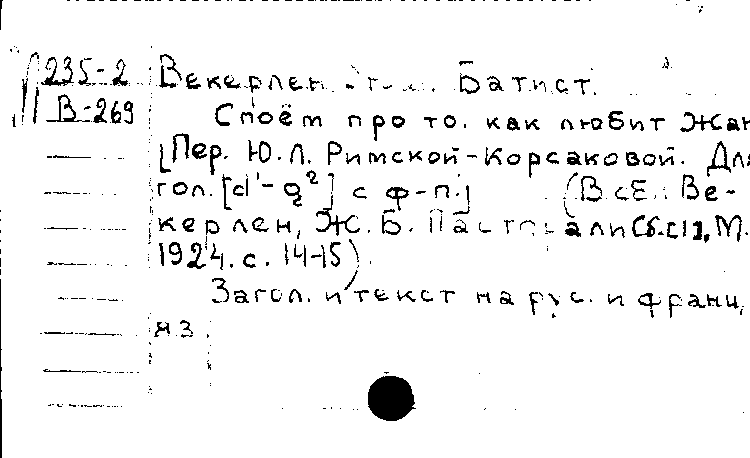 235-2 Векерлен Батист.
В-269 Споём про то, как любит Жан
[Пер. Ю.Л. Римской-Корсаковой. Для
гол. [d'-g²] с ф-п.] (В сб.: Ве-
керлен, Ж.Б. Пасторали М.
1924. с. 14-15).
Загол. и текст на рус. и франц.
яз.